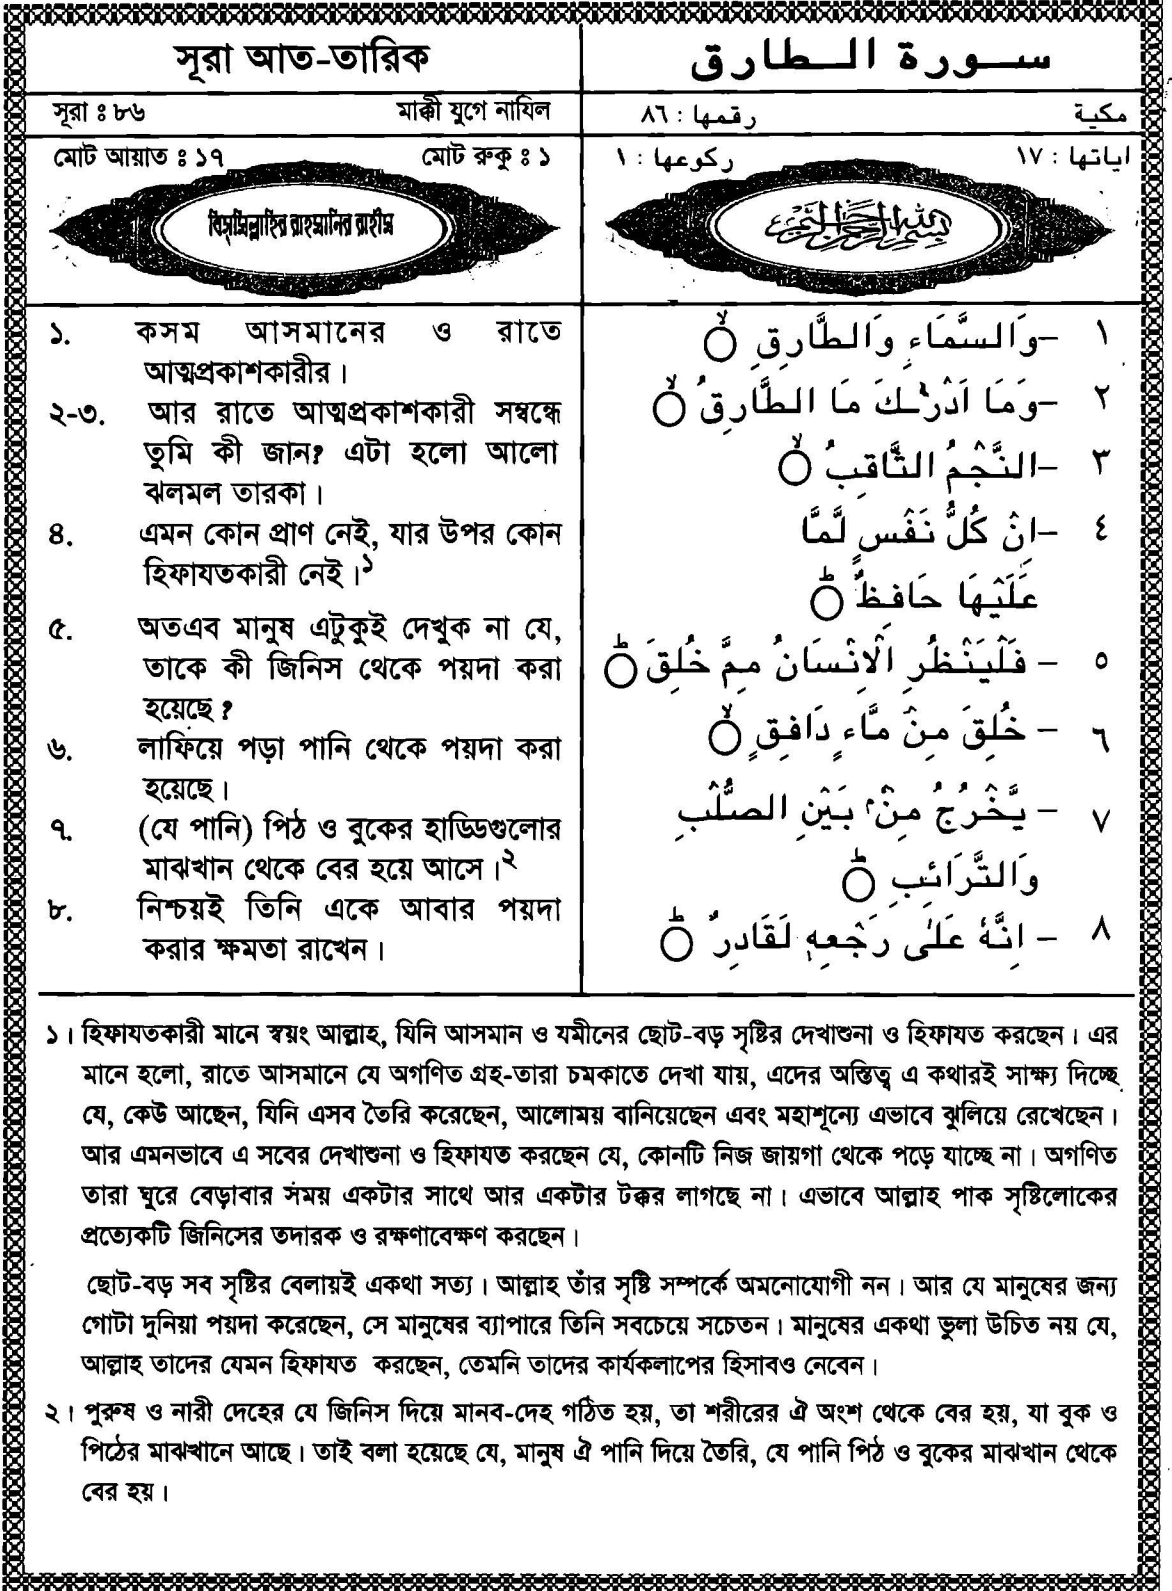 সূরা আত-তারিক
سـورة الـطارق
সূরা ঃ ৮৬ মাক্কী যুগে নাযিল
مكية رقمها : ٨٦
মোট আয়াত ঃ ১৭ মোট রুকু ঃ ১
اياتها : ١٧ ركوعها : ١
বিসমিল্লাহির রাহমানির রাহীম
بِسْمِ اللهِ الرَّحْمٰنِ الرَّحِيْمِ
১. কসম আসমানের ও রাতে
আত্মপ্রকাশকারীর।
২-৩. আর রাতে আত্মপ্রকাশকারী সম্বন্ধে
তুমি কী জান? এটা হলো আলো
ঝলমল তারকা।
৪. এমন কোন প্রাণ নেই, যার উপর কোন
হিফাযতকারী নেই।১
৫. অতএব মানুষ এটুকুই দেখুক না যে,
তাকে কী জিনিস থেকে পয়দা করা
হয়েছে?
৬. লাফিয়ে পড়া পানি থেকে পয়দা করা
হয়েছে।
৭. (যে পানি) পিঠ ও বুকের হাড্ডিগুলোর
মাঝখান থেকে বের হয়ে আসে।২
৮. নিশ্চয়ই তিনি একে আবার পয়দা
করার ক্ষমতা রাখেন।
١ –وَالسَّمَاءِ وَالطَّارِقِ ۙ
٢ –وَمَا اَدْرٰىكَ مَا الطَّارِقُ ۙ
٣ –النَّجْمُ الثَّاقِبُ ۙ
٤ –اِنْ كُلُّ نَفْسٍ لَّمَّا
عَلَيْهَا حَافِظٌ ؕ
٥ – فَلْيَنْظُرِ الْاِنْسَانُ مِمَّ خُلِقَ ؕ
٦ – خُلِقَ مِنْ مَّاءٍ دَافِقٍ ۙ
٧ – يَّخْرُجُ مِنْۢ بَيْنِ الصُّلْبِ
وَالتَّرَائِبِ ؕ
٨ – اِنَّهٗ عَلٰى رَجْعِهٖ لَقَادِرٌ ؕ
১। হিফাযতকারী মানে স্বয়ং আল্লাহ, যিনি আসমান ও যমীনের ছোট-বড় সৃষ্টির দেখাশুনা ও হিফাযত করছেন। এর
মানে হলো, রাতে আসমানে যে অগণিত গ্রহ-তারা চমকাতে দেখা যায়, এদের অস্তিত্ব এ কথারই সাক্ষ্য দিচ্ছে
যে, কেউ আছেন, যিনি এসব তৈরি করেছেন, আলোময় বানিয়েছেন এবং মহাশূন্যে এভাবে ঝুলিয়ে রেখেছেন।
আর এমনভাবে এ সবের দেখাশুনা ও হিফাযত করছেন যে, কোনটি নিজ জায়গা থেকে পড়ে যাচ্ছে না। অগণিত
তারা ঘুরে বেড়াবার সময় একটার সাথে আর একটার টক্কর লাগছে না। এভাবে আল্লাহ পাক সৃষ্টিলোকের
প্রত্যেকটি জিনিসের তদারক ও রক্ষণাবেক্ষণ করছেন।
ছোট-বড় সব সৃষ্টির বেলায়ই একথা সত্য। আল্লাহ তাঁর সৃষ্টি সম্পর্কে অমনোযোগী নন। আর যে মানুষের জন্য
গোটা দুনিয়া পয়দা করেছেন, সে মানুষের ব্যাপারে তিনি সবচেয়ে সচেতন। মানুষের একথা ভুলা উচিত নয় যে,
আল্লাহ তাদের যেমন হিফাযত করছেন, তেমনি তাদের কার্যকলাপের হিসাবও নেবেন।
২। পুরুষ ও নারী দেহের যে জিনিস দিয়ে মানব-দেহ গঠিত হয়, তা শরীরের ঐ অংশ থেকে বের হয়, যা বুক ও
পিঠের মাঝখানে আছে। তাই বলা হয়েছে যে, মানুষ ঐ পানি দিয়ে তৈরি, যে পানি পিঠ ও বুকের মাঝখান থেকে
বের হয়।